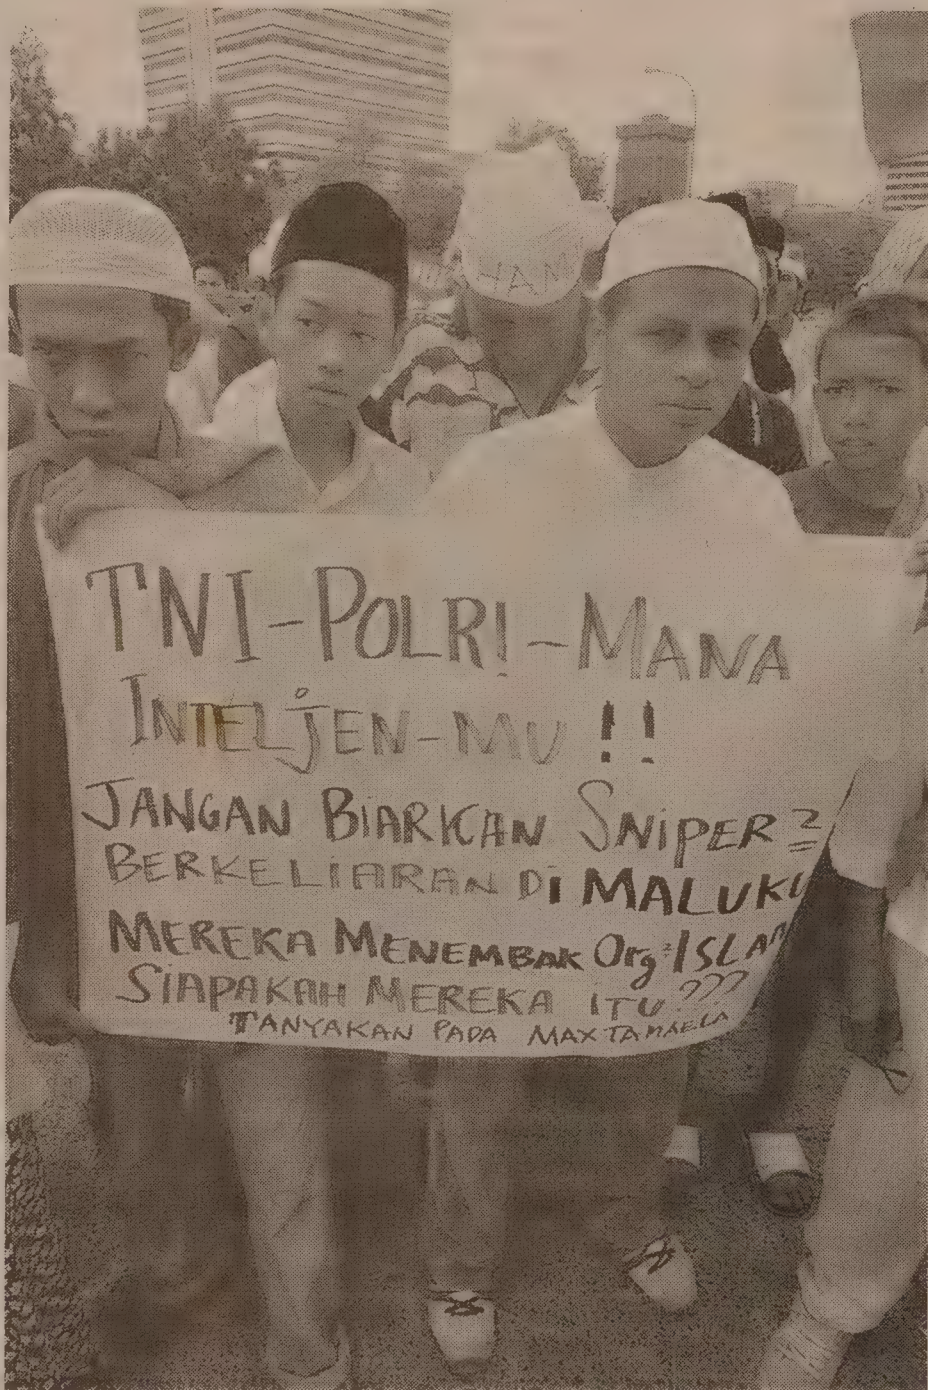 HAM
TNI-POLRI-MANA
INTELJEN-MU !!
JANGAN BIARKAN SNIPER2
BERKELIARAN DI MALUKU
MEREKA MENEMBAK Org2 ISLAM
SIAPAKAH MEREKA ITU ???
TANYAKAN PADA MAX TAMAELA